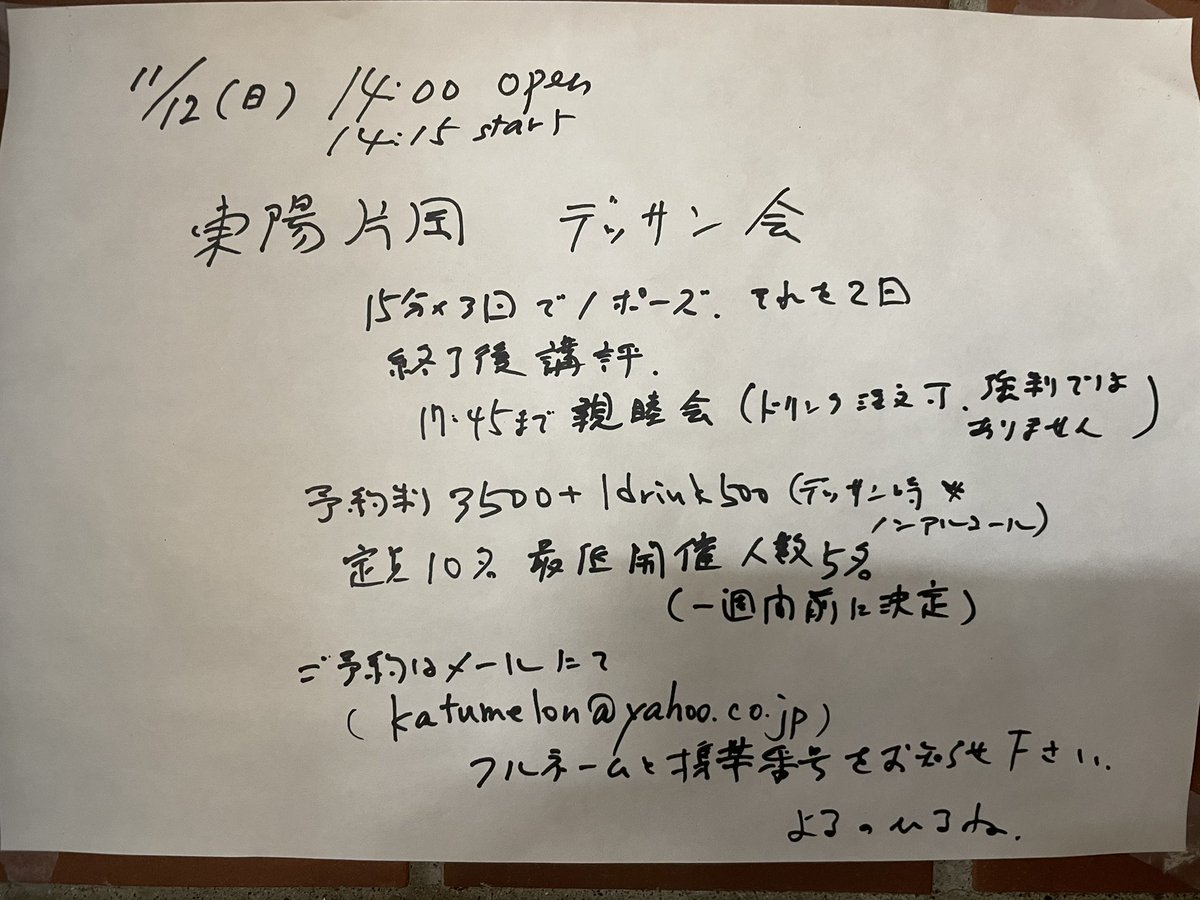 11/12(日) 14:00 open
14:15 start
東陽片岡 デッサン会
15分×3回で1ポーズ. それを2回
終了後講評.
17:45まで親睦会(ドリンク注文可. 強制では
ありません)
予約制 3500+1drink500(デッサン時*
ノンアルコール)
定員10名 最低開催人数5名
(一週間前に決定)
ご予約はメールにて
(katumelon@yahoo.co.jp)
フルネームと携帯番号をお知らせ下さい.
よるのひるね.